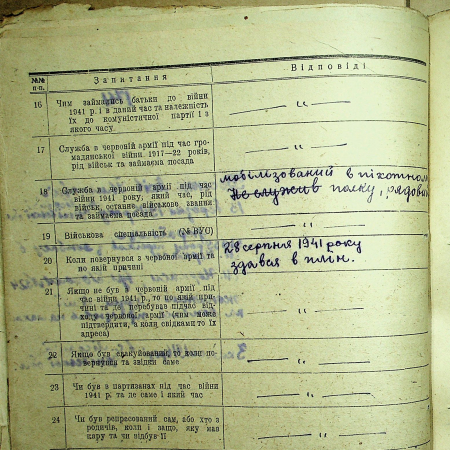 №№ п-п.
Запитання
Відповіді
16 Чим займались батьки до війни
1941 р. і в даний час та належність
їх до комуністичної партії і з
якого часу
— „ —
17 Служба в червоній армії під час гро-
мадянської війни 1917—22 років,
рід військ та займаєма посада
— „ —
18 Служба в червоній армії під час
війни 1941 року, який час, рід
військ, останнє військове звання
та займаєма посада
мобілізований в піхотном
Не служив полку, рядови
19 Військова спеціальність (№ ВУС)
— „ —
20 Коли повернувся з червоної армії та
по якій причині
28 серпня 1941 року
здався в плин.
21 Якщо не був в червоній армії під
час війни 1941 р., то по якій при-
чині та де перебував підчас від-
ходу червоної армії (чим може
підтвердити, а коли свідками то їх
адреса)
— „ —
22 Якщо був евакуйований, то коли по-
вернувся та звідки саме
— „ —
23 Чи був в партизанах під час війни
1941 р. та де саме і який час
— „ —
24 Чи був репресований сам, або хто з
родичів, коли і защо, яку мав
кару та чи відбув її
— „ —